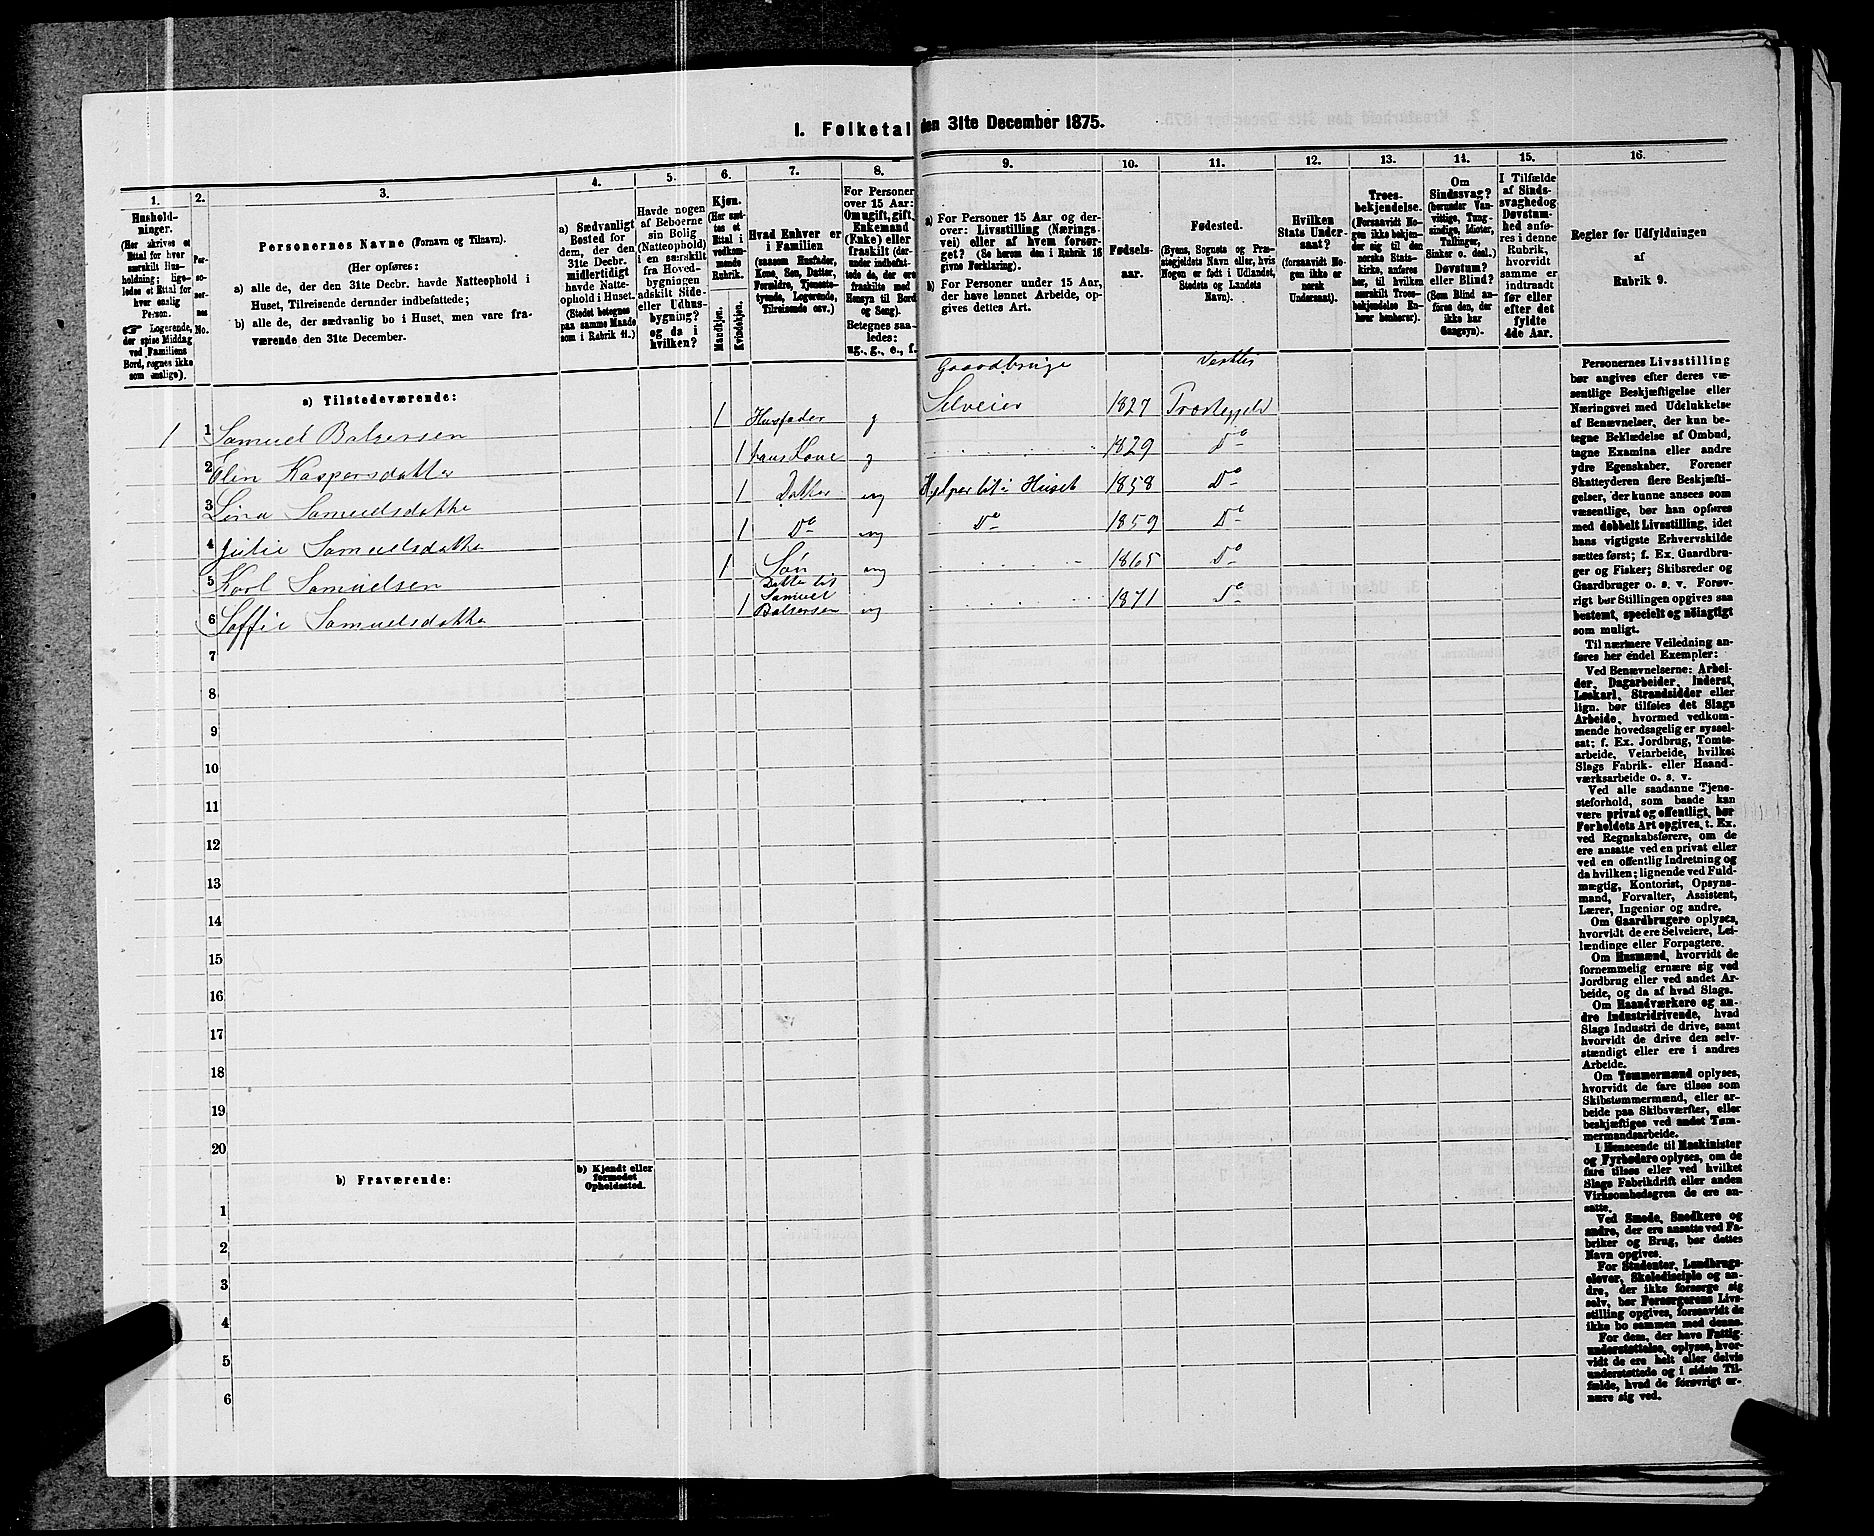 1. Folketal den 31te December 1875.
1.
Hushold-
ninger.
(Her skrives et
Ettal for hver
særskilt Hus-
holdning; lige-
ledes et Ettal for
hver enslig
Person.
☞ Logerende,
der spise Middag
ved Familiens
Bord, regnes ikke
som enslige).
2.
Per-
so-
ner-
nes
No.
3.
Personernes Navne (Fornavn og Tilnavn).
(Her opføres:
a) alle de, der den 31te Decbr. havde Natteophold i
Huset, Tilreisende derunder indbefattede;
b) alle de, der sædvanlig bo i Huset, men vare fra-
værende den 31te December.
4.
a) Sædvanligt
Bosted for
dem, der den
31te Decbr.
midlertidigt
havde Natte-
ophold i Huset.
(Stedet betegnes
paa samme Maade
som i Rubrik 11.)
5.
Havde nogen
af Beboerne
sin Bolig
(Natteophold)
i en særskilt
fra Hoved-
bygningen
adskilt Side-
eller Udhus-
bygning?
og da i
hvilken?
6.
Kjøn.
(Her sæt-
tes et
Ettal i
vedkom-
mende
Rubrik.
Mandkjøn.
Kvindekjøn.
7.
Hvad Enhver er
i Familien
(saasom Husfader,
Kone, Søn, Datter,
Forældre, Tjeneste-
tyende, Logerende,
Tilreisende osv.)
8.
For Personer
over 15 Aar:
Om ugift, gift,
Enkemand
(Enke) eller
fraskilt (der-
under indbefat-
tede de, der ere
fraskilte med
Hensyn til Bord
og Seng).
Betegnes saa-
ledes:
ug., g., e., f.
9.
a) For Personer 15 Aar og der-
over: Livsstilling (Nærings-
vei) eller af hvem forsør-
get? (Se herom den i Rubrik 16
givne Forklaring).
b) For Personer under 15 Aar,
der have lønnet Arbeide, op-
gives dettes Art.
10.
Fødsels-
aar.
11.
Fødested.
(Byens, Sognets og Præ-
stegjeldets Navn eller, hvis
Nogen er født i Udlandet,
Stedets og Landets
Navn).
12.
Hvilken
Stats Under-
saat?
(forsaavidt No-
gen ikke er
norsk
Undersaat).
13.
Troes-
bekjendelse.
(Forsaavidt No-
gen ikke bekjen-
der sig til den
norske Stats-
kirke, anføres
her, til hvilken
særskilt Troes-
bekjendelse En-
hver henhører).
14.
Om
Sindssvag?
(herunder Van-
vittige, Tung-
sindige, Idioter,
Tullinger,
Sinker o. desl.)
Døvstum?
eller Blind?
(Som Blind an-
føres den, der
ikke har
Gangsyn).
15.
I Tilfælde
af Sinds-
svaghed og
Døvstum-
hed anfø-
res i denne
Rubrik,
hvorvidt
samme er
indtraadt
før eller
efter det
fyldte
4de Aar.
16.
Regler for Udfyldningen
af
Rubrik 9.
a) Tilstedeværende:
Gaardbruge Vestlis
1 1 Samuel Balsersen 1 Husfader g Selveier 1827 Præstegjeld
2 Elen Kaspersdatter 1 hans Kone g 1829 Do
3 Lina Samuelsdatter 1 Datter ug Hjelper til i Huset 1858 Do
4 Julie Samuelsdatter 1 Do ug Do 1859 Do
5 Karl Samuelsen 1 Søn ug 1865 Do
6 Soffie Samuelsdatter 1 Datter til
Samuel
Balsersen ug 1871 Do
7
8
9
10
11
12
13
14
15
16
17
18
19
20
b) Fraværende:
b) Kjendt eller
formodet
Opholdssted.
1
2
3
4
5
6
Personernes Livsstilling
bør angives efter deres væ-
sentlige Beskjæftigelse eller
Næringsvei med Udelukkelse
af Benævnelser, der kun be-
tegne Beklædelse af Ombud,
tagne Examina eller andre
ydre Egenskaber. Forener
Skatteyderen flere Beskjæfti-
gelser, der kunne ansees som
væsentlige, bør han opføres
med dobbelt Livsstilling, idet
hans vigtigste Erhvervskilde
sættes først; f. Ex. Gaardbru-
ger og Fisker; Skibsreder og
Gaardbruger o. s. v. Forøv-
rigt bør Stillingen opgives saa
bestemt, specielt og nøiagtigt
som muligt.
Til nærmere Veiledning an-
føres her endel Exempler:
Ved Benævnelserne: Arbei-
der, Dagarbeider, Inderst,
Løskarl, Strandsidder eller
lign. bør tilføies det Slags
Arbeide, hvormed vedkom-
mende hovedsagelig er syssel-
sat; f. Ex. Jordbrug, Tomte-
arbeide, Veiarbeide, hvilket
Slags Fabrik- eller Haand-
værksarbeide o. s. v.
Ved alle saadanne Tjene-
steforhold, som baade kan
være privat og offentligt, bør
Forholdets Art opgives, f. Ex.
ved Regnskabsførere, om de
ere ansatte ved en privat eller
ved en offentlig Indretning og
da hvilken; lignende ved Fuld-
mægtig, Kontorist, Opsyns-
mand, Forvalter, Assistent,
Lærer, Ingeniør og andre.
Om Gaardbrugere oplyses,
hvorvidt de ere Selveiere, Lei-
lændinge eller Forpagtere.
Om Husmænd, hvorvidt de
fornemmelig ernære sig ved
Jordbrug eller ved andet Ar-
beide, og da af hvad Slags.
Om Haandværkere og an-
dre Industridrivende, hvad
Slags Industri de drive, samt
hvorvidt de drive den selv-
stændigt eller ere i andres
Arbeide.
Om Tømmermænd oplyses,
hvorvidt de fare tilsøs som
Skibstømmermænd, eller ar-
beide paa Skibsværfter, eller
beskjæftiges ved andet Tøm-
mermandsarbeide.
I Henseende til Maskinister
og Fyrbødere oplyses, om de
fare tilsøs eller ved hvilket
Slags Fabrikdrift eller anden
Virksomhedsgren de ere an-
satte.
Ved Smede, Snedkere og
andre, der ere ansatte ved Fa-
briker og Brug, bør dettes
Navn opgives.
For Studenter, Landbrugs-
elever, Skoledisciple og an-
dre, der ikke forsørge sig
selv, bør Forsørgerens Livs-
stilling opgives, forsaavidt de
ikke bo sammen med denne.
For dem, der have Fattig-
understøttelse, oplyses, hvor-
vidt de ere helt eller delvis
understøttede og i sidste Til-
fælde, hvad de forøvrigt er-
nære sig ved.